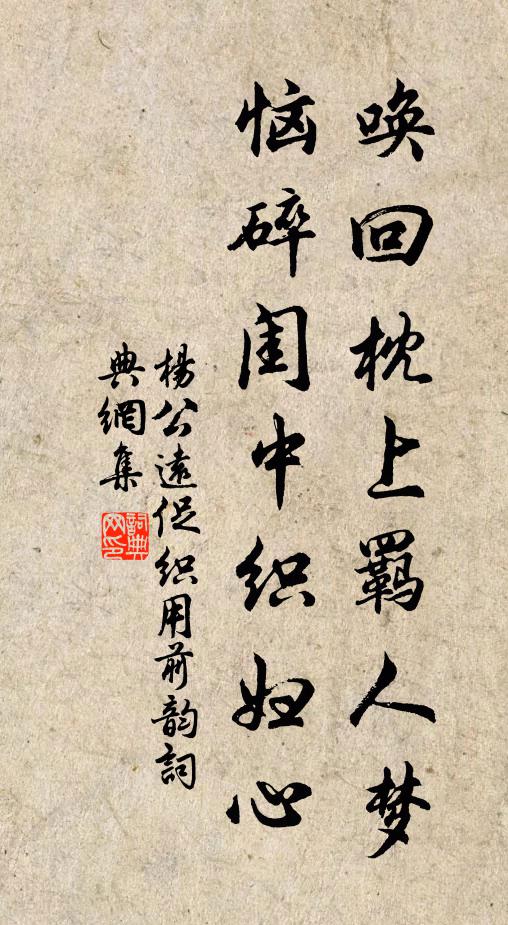 唤回枕上羁人梦
恼碎闺中织妇心
杨公远促织用前韵词
典网集
词典网印